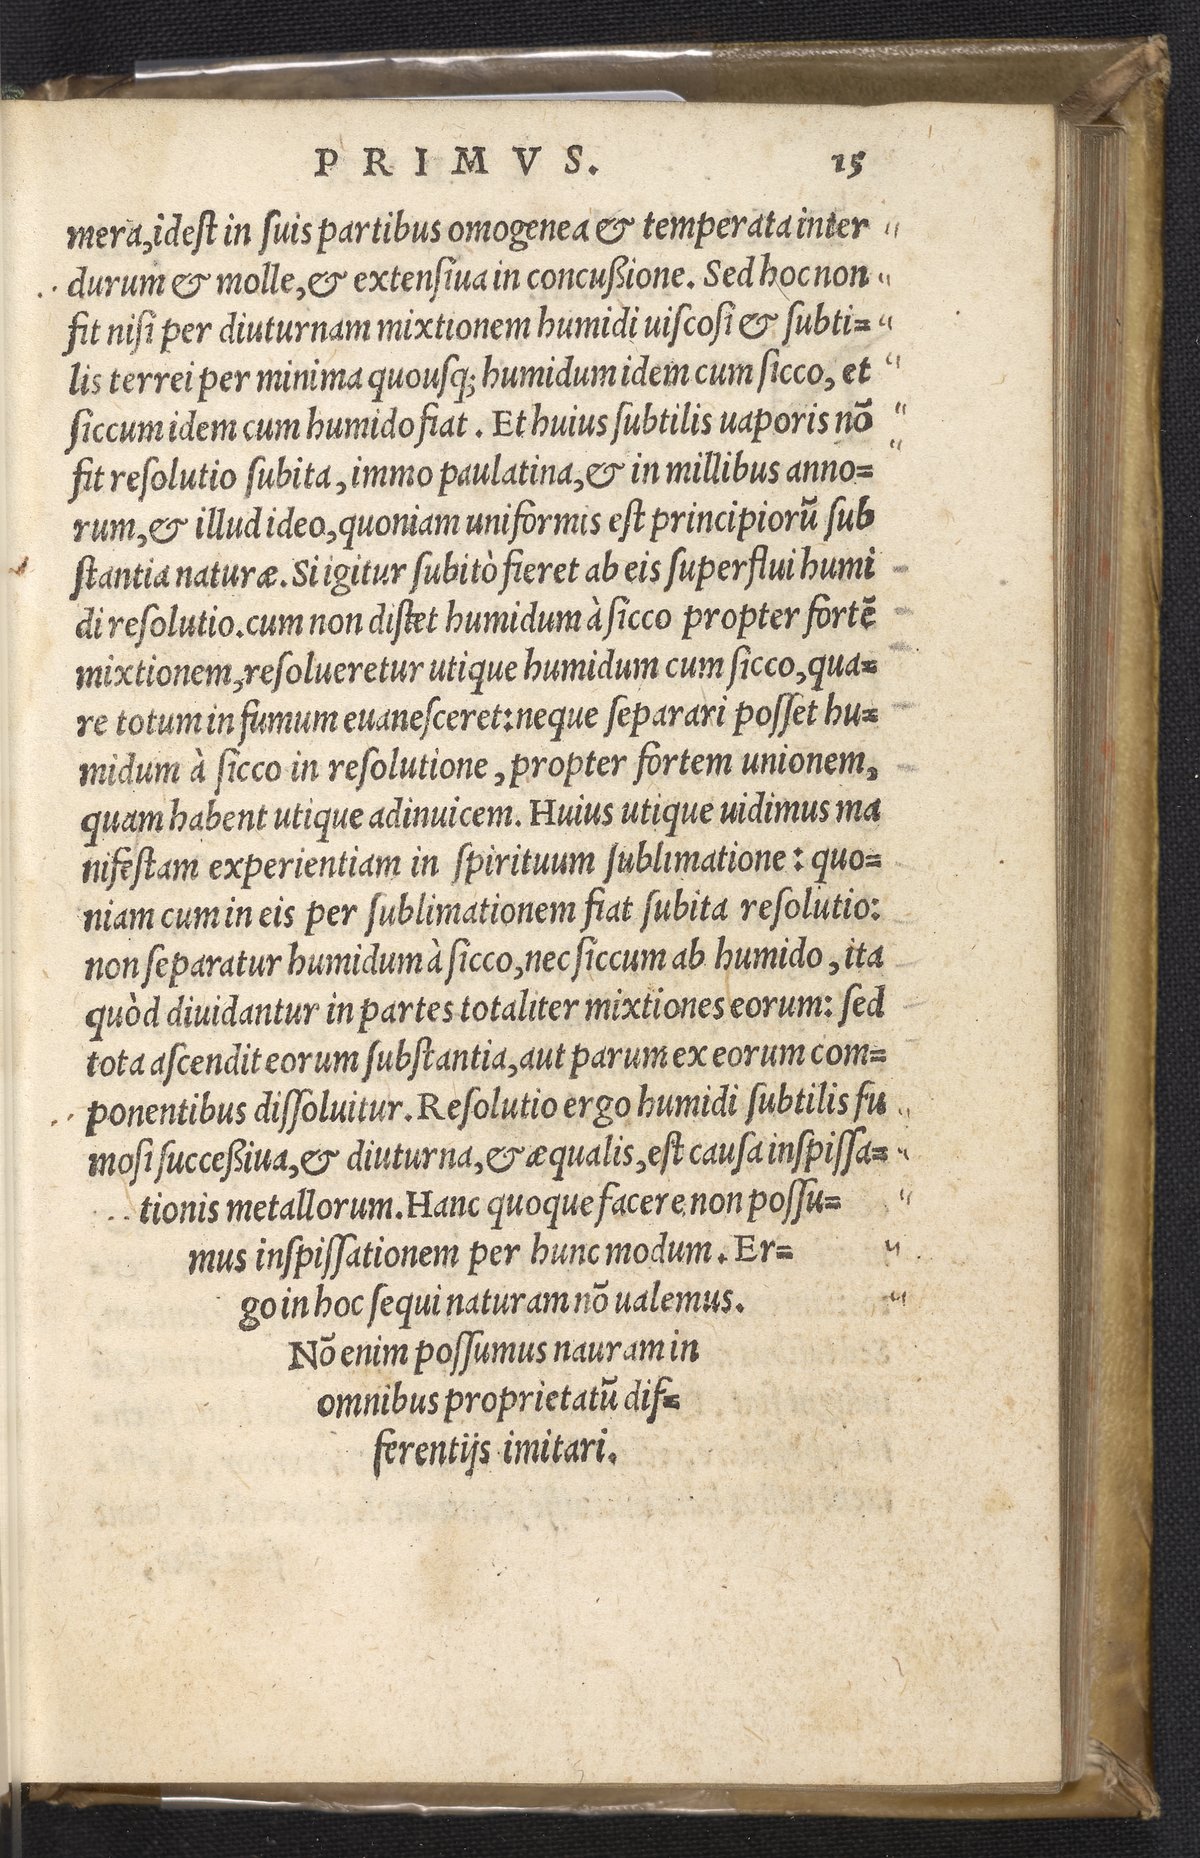 PRIMVS. 15
mera, idest in ſuis partibus omogenea & temperata inter
durum & molle, & extenſiua in concuſſione. Sed hoc non
fit niſi per diuturnam mixtionem humidi uiſcoſi & ſubti=
lis terrei per minima quouſq; humidum idem cum ſicco, et
ſiccum idem cum humido fiat. Et huius ſubtilis uaporis nō
fit reſolutio ſubita, immo paulatina, & in millibus anno=
rum, & illud ideo, quoniam uniformis eſt principiorũ ſub
ſtantia naturæ. Si igitur ſubitò fieret ab eis ſuperflui humi
di reſolutio. cum non diſtet humidum à ſicco propter fortē
mixtionem, reſolueretur utique humidum cum ſicco, qua=
re totum in fumum euaneſceret: neque ſeparari poſſet hu=
midum à ſicco in reſolutione, propter fortem unionem,
quam habent utique adinuicem. Huius utique uidimus ma
nifeſtam experientiam in ſpirituum ſublimatione: quo=
niam cum in eis per ſublimationem fiat ſubita reſolutio:
non ſeparatur humidum à ſicco, nec ſiccum ab humido, ita
quòd diuidantur in partes totaliter mixtiones eorum: ſed
tota aſcendit eorum ſubſtantia, aut parum ex eorum com=
ponentibus diſſoluitur. Reſolutio ergo humidi ſubtilis fu
moſi ſucceſſiua, & diuturna, & æqualis, eſt cauſa inſpiſſa=
tionis metallorum. Hanc quoque facere non poſſu=
mus inſpiſſationem per hunc modum. Er=
go in hoc ſequi naturam nō ualemus.
Nō enim poſſumus nauram in
omnibus proprietatũ dif=
ferentijs imitari.